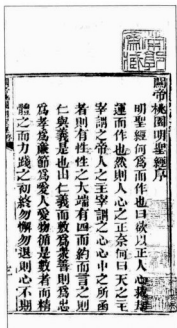 關帝桃園明聖經序
明聖經何爲而作也曰欲以正人心挽
運而作也然則人心之正奈何曰天之主
宰謂之帝人之主宰謂之心心中之所函
者則有性性之大端有四而約而言之則
仁與義是也由仁義而敷爲衆善則爲忠
爲孝爲廉節爲愛人愛物循是數者而精
體之而力踐之初終勿懈勿退則心不期